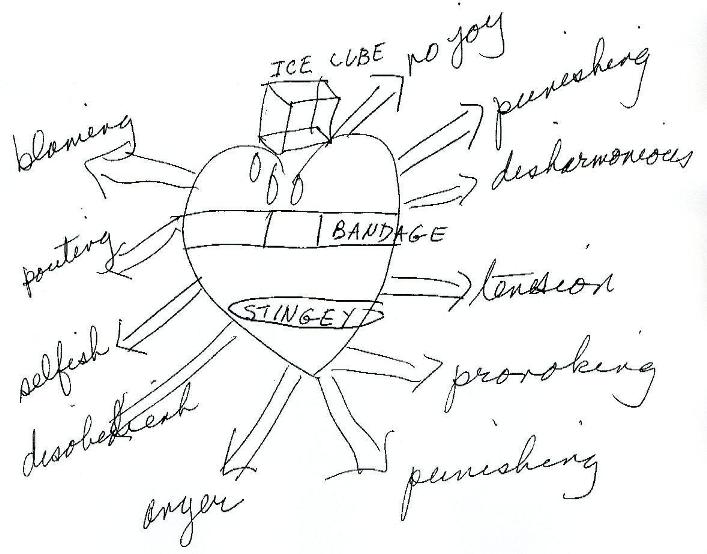 ICE CUBE
no joy
punishing
blaming
disharmonious
pouting
BANDAGE
tension
STINGEY
selfish
provoking
disobedient
anger
punishing